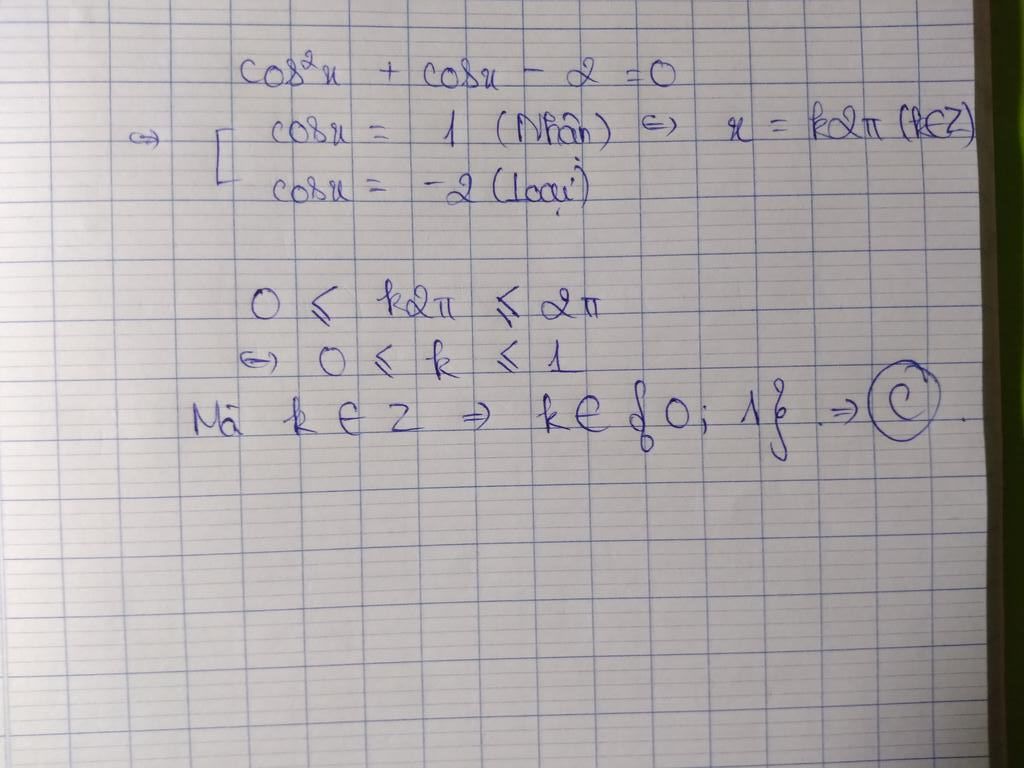 cos²x + cosx - 2 = 0
⇔ [ cosx = 1 (Nhận) ⇔ x = k2π (k∈Z)
cosx = -2 (Loại)
0 ⩽ k2π ⩽ 2π
⇔ 0 ⩽ k ⩽ 1
Mà k ∈ Z ⇒ k ∈ {0; 1} ⇒ C.